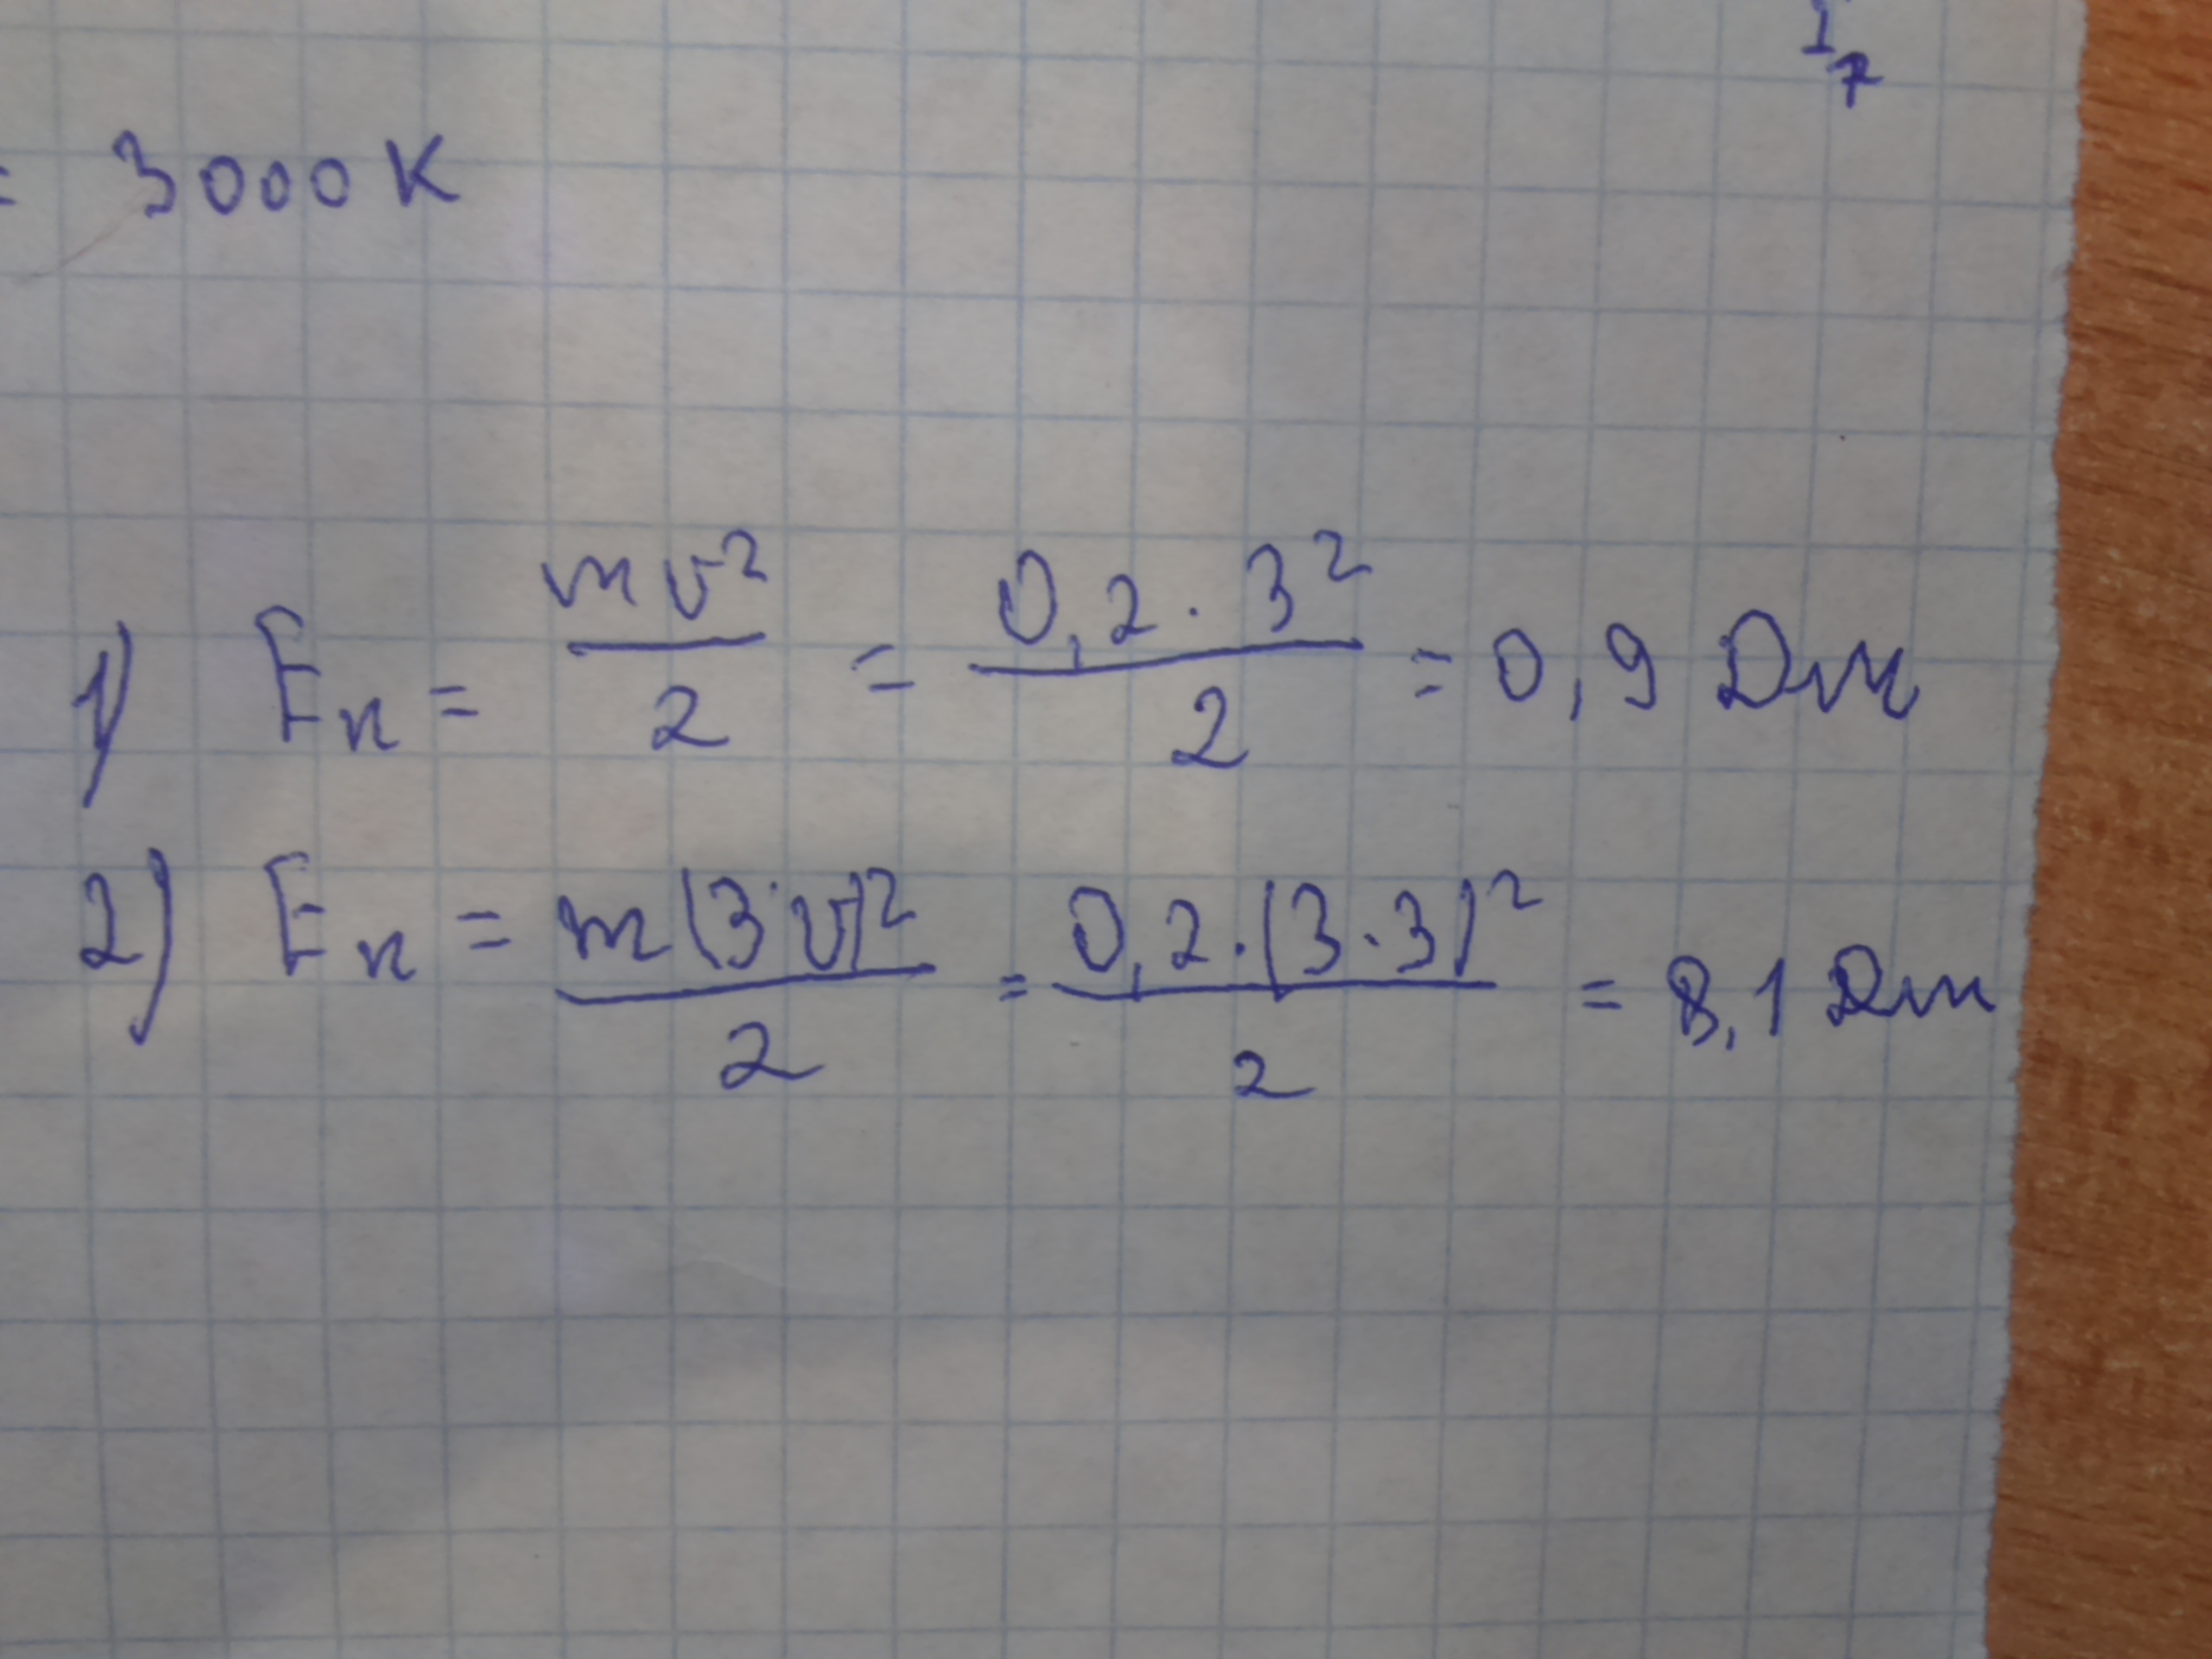 = 3000 К
1) Eк = mv²/2 = 0,2 · 3²/2 = 0,9 Дж
2) Eк = m(3·v)²/2 = 0,2 · (3 · 3)²/2 = 8,1 Дж